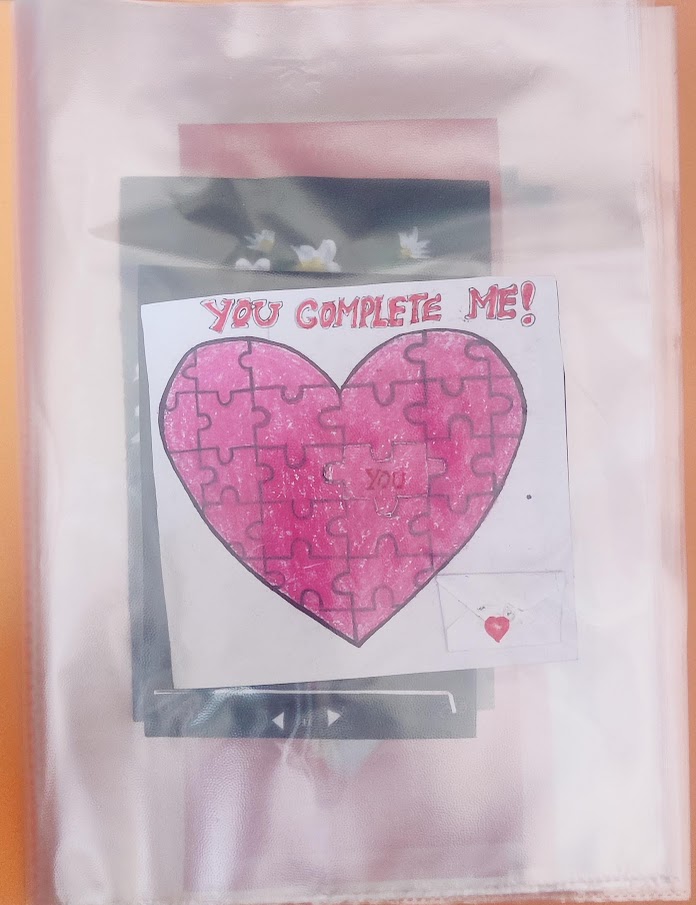 YOU COMPLETE ME!
YOU